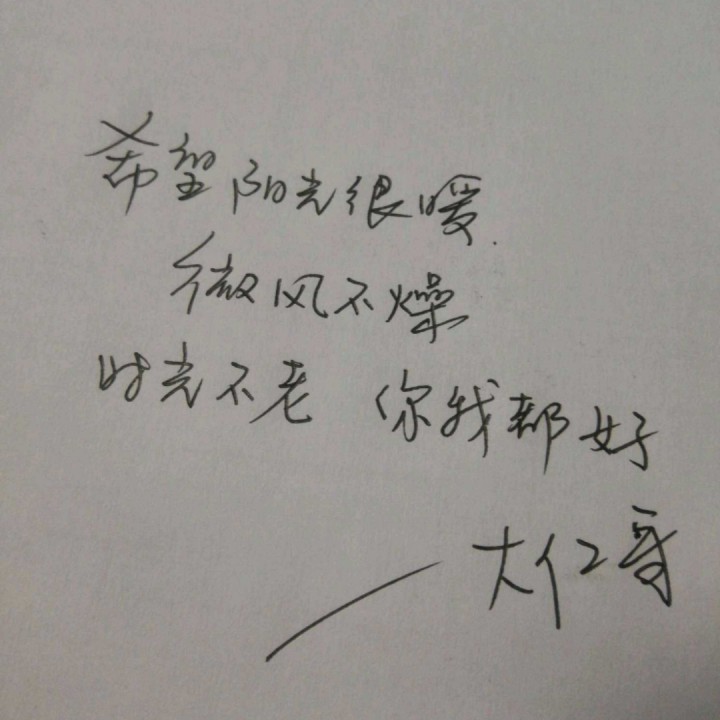 希望阳光很暖.
微风不燥
时光不老 你我都好
——大仁哥